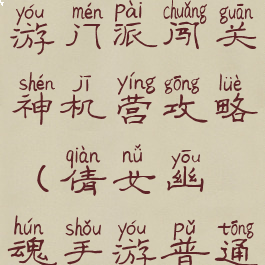 yóu mén pài chuǎng guān
游门派闯关
shén jī yíng gōng lüè
神机营攻略
qiàn nǚ yōu
(倩女幽
hún shǒu yóu pǔ tōng
魂手游普通